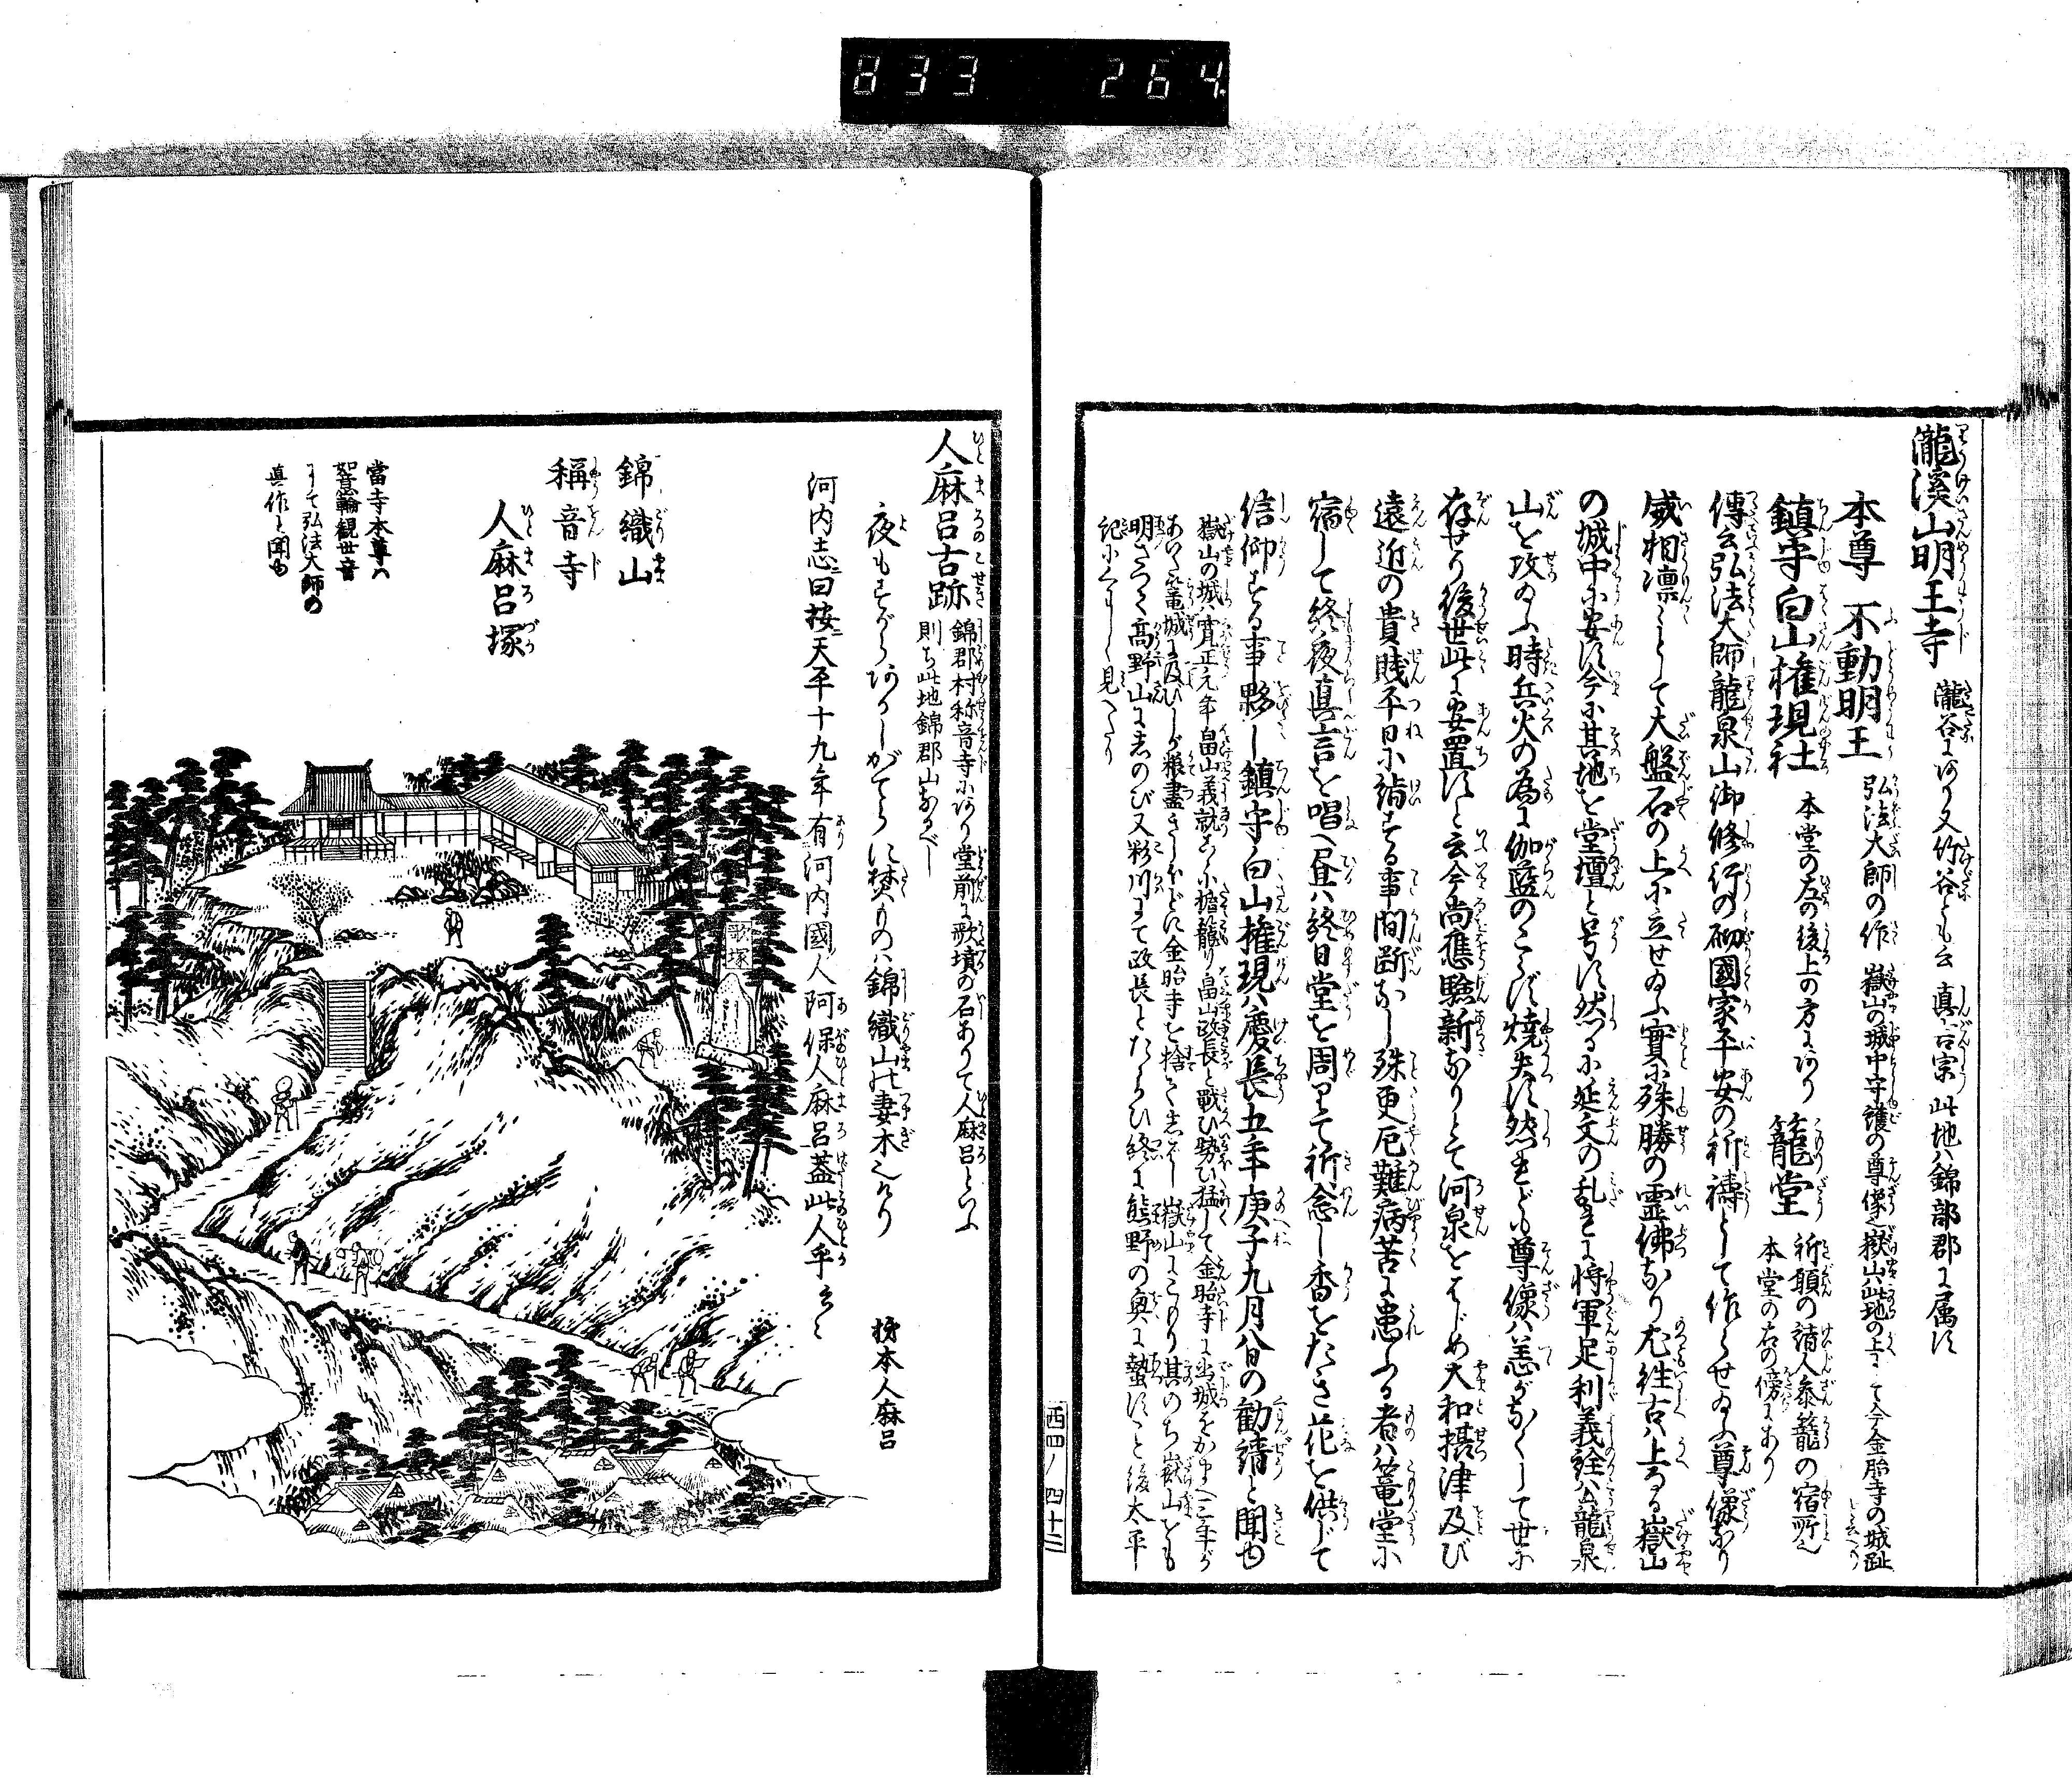 833 264
瀧溪山明王寺 瀧谷にあり又竹谷とも云 真言宗 此地ハ錦部郡に属す
本尊 不動明王 弘法大師の作 嶽山の城中守護の尊像也嶽山ハ此地の上にて今金胎寺の城趾
鎮守白山権現社 本堂の左の後上の方にあり 籠堂 祈願の諸人参籠の宿所也
本堂の右の傍にあり
傳云弘法大師龍泉山御修行の砌國家平安の祈祷として作らせ給ふ尊像なり
威相凛々として大盤石の上に立せ給ふ實に殊勝の霊佛なり尤往古ハ上なる嶽山
の城中に安す今に其地を堂壇と号す然るに延文の乱れに将軍足利義詮公龍泉
山を攻給ふ時兵火の為に伽藍のこらず焼失す然れども尊像ハ恙がなくして世に
存せり後世此に安置すと云今尚應驗新なりとて河泉をはじめ大和摂津及び
遠近の貴賎平日に詣する事間断なし殊更厄難病苦に患ふる者ハ篭堂に
宿して終夜真言を唱へ昼ハ終日堂を周りて祈念し香をたき花を供じて
信仰する事夥し鎮守白山権現ハ慶長五年庚子九月八日の勧請と聞ゆ
嶽山の城ハ寛正元年畠山義就こゝに楯籠り畠山政長と戦ひ勢ひ猛して金胎寺に出城をかまへ三年が
あいだ篭城に及びしが粮盡きしほどに金胎寺を捨て志ばし嶽山にこもり其のち嶽山をも
明さつて高野山に志のび又粉川にて政長とたゝかひ終に熊野の奥に蟄すと後太平
記にくわしく見へたり
西四ノ四十三
人麻呂古跡 錦郡村称音寺にあり堂前に歌墳の石ありて人麻呂といふ
則ち此地錦郡山なるべし
夜もすがらあかしがてらに焚ものハ錦織山の妻木也けり 柿本人麻呂
河内志ニ曰按ニ天平十九年有河内國人阿保人麻呂蓋此人乎云々
錦織山
稱音寺
人麻呂塚
當寺本尊ハ
如意輪観世音
にて弘法大師の
真作と聞ゆ
歌塚